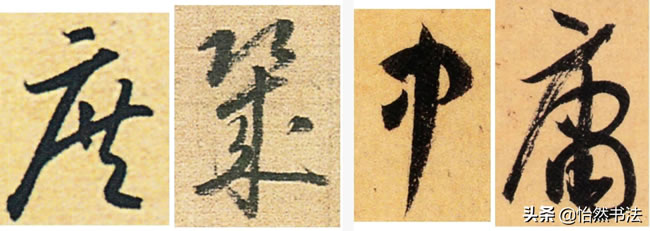 庶幾中庸
头条 @怡然书法